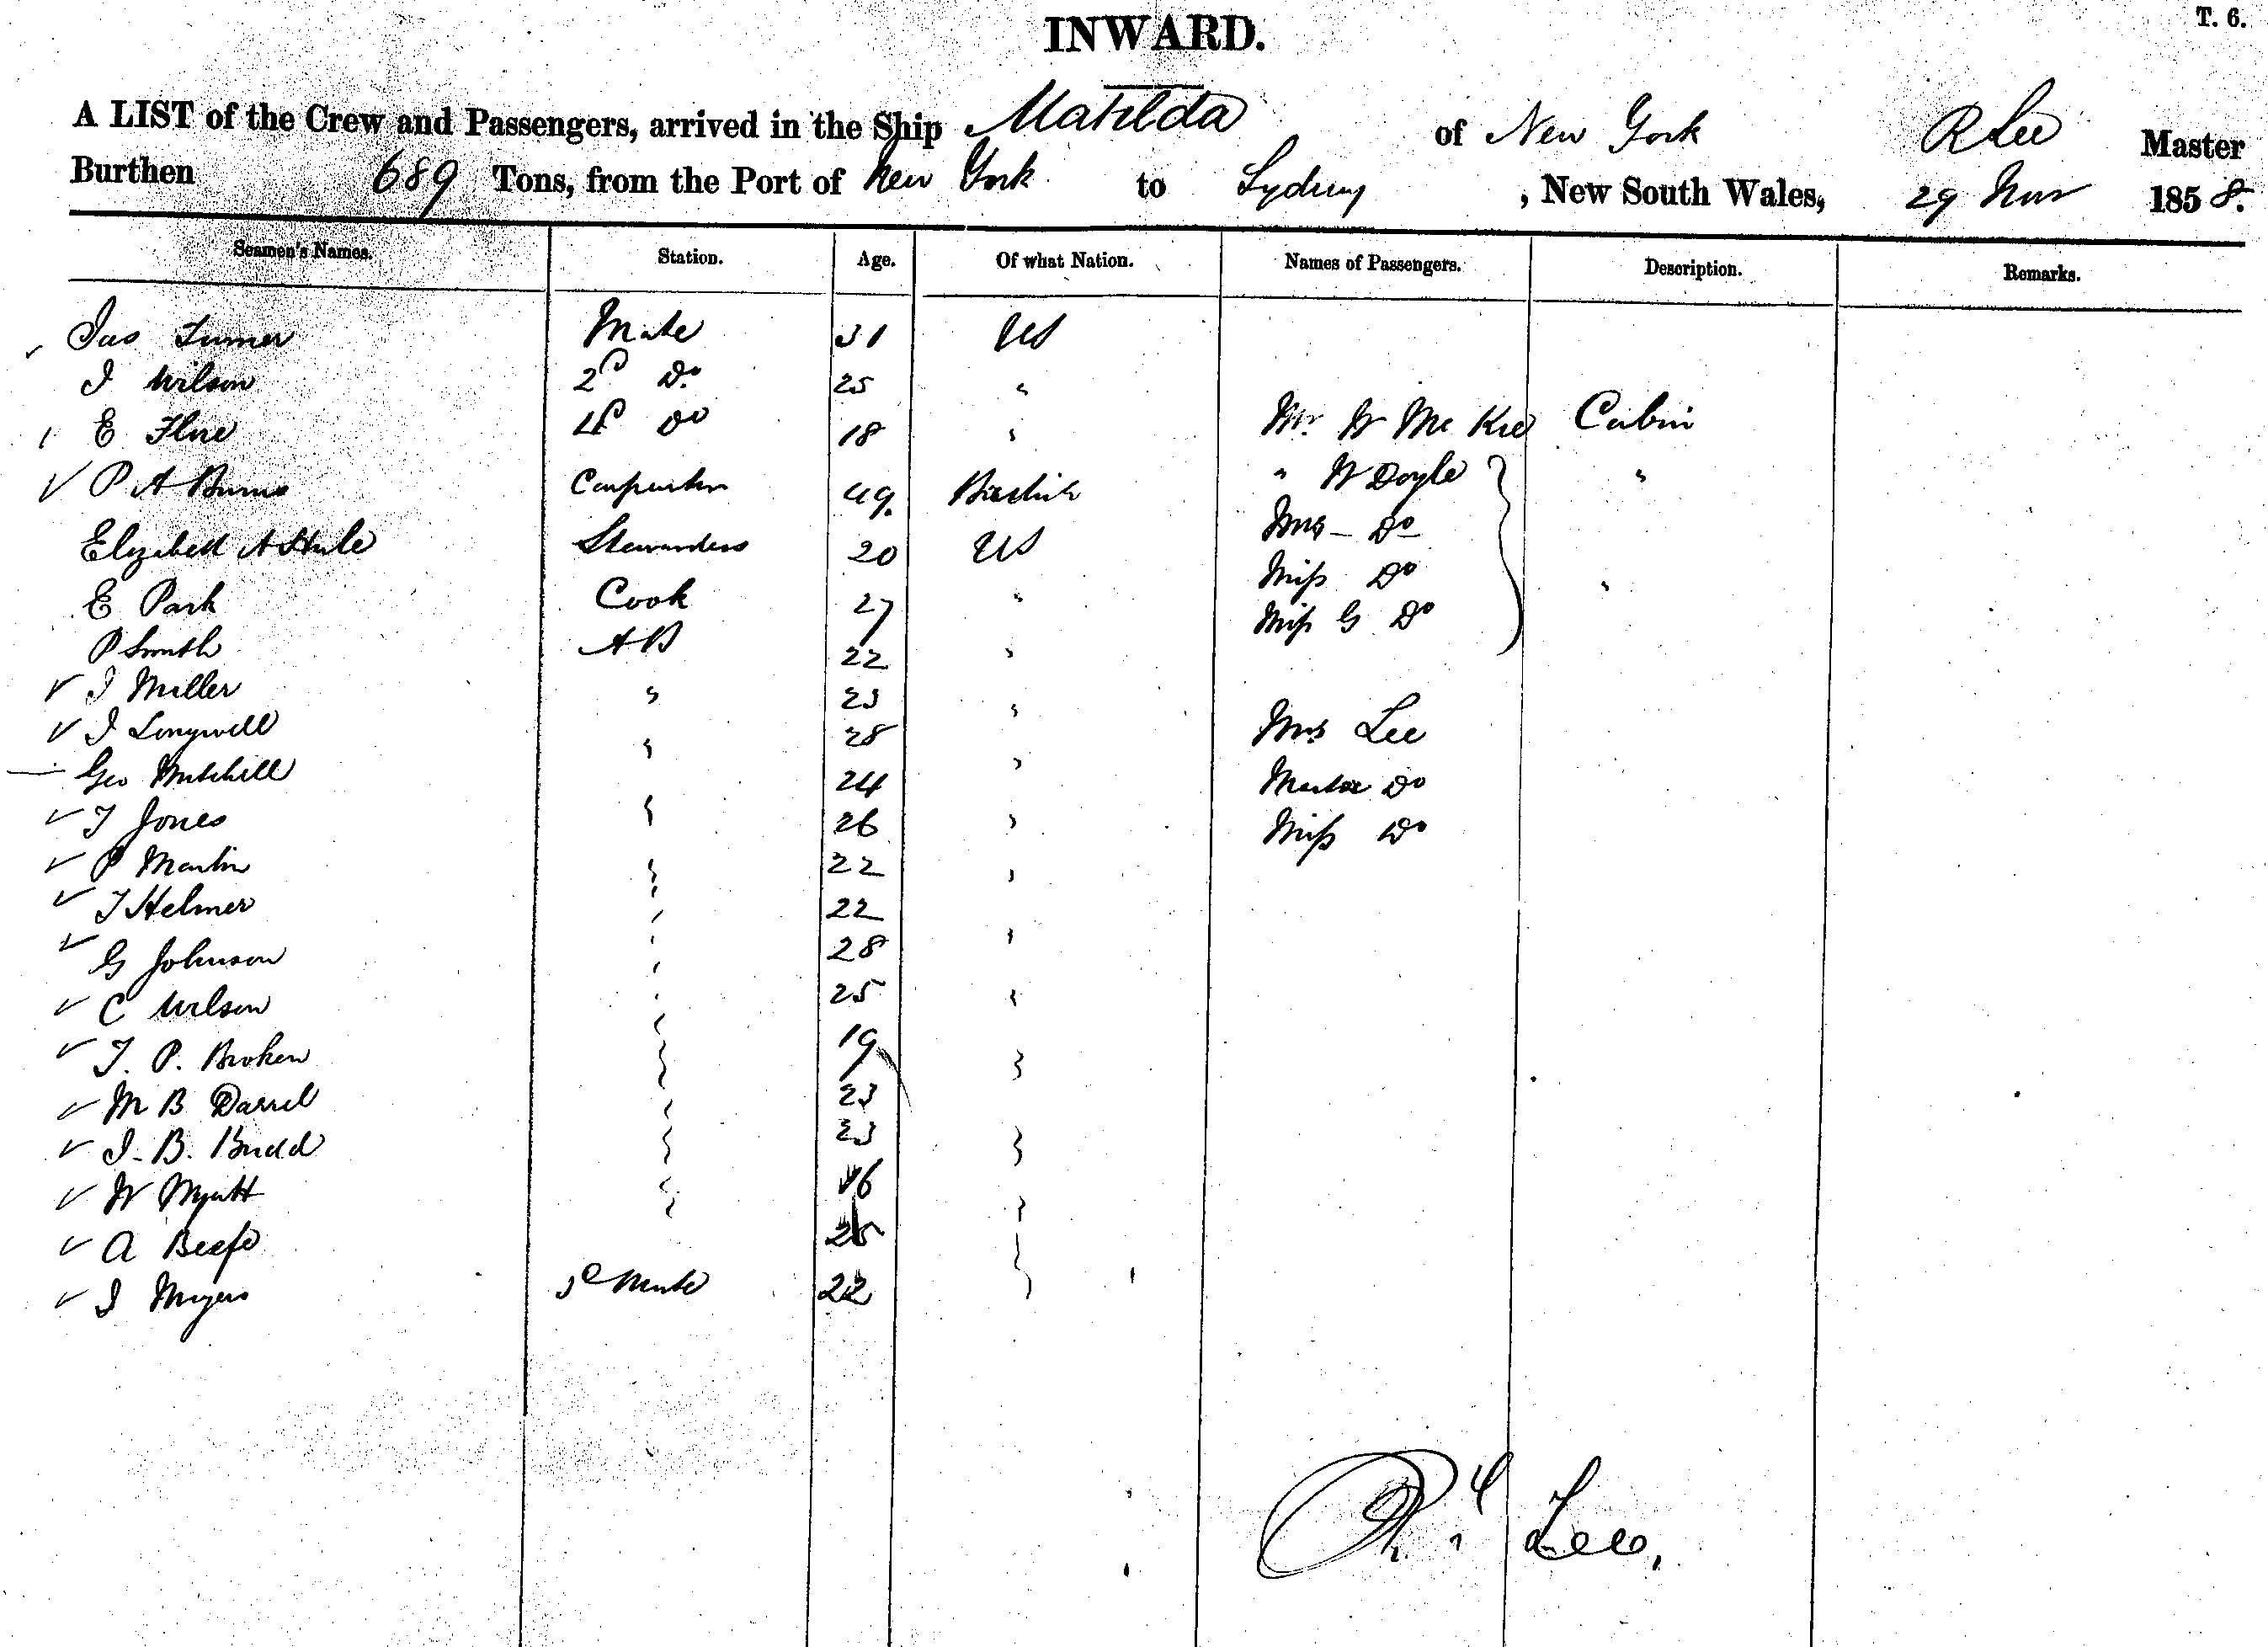 T. 6.
INWARD.
A LIST of the Crew and Passengers, arrived in the Ship Matilda of New York R Lee Master
Burthen 689 Tons, from the Port of New York to Sydney, New South Wales, 29 1858.
Seamen's Names. Station. Age. Of what Nation. Names of Passengers. Description. Remarks.
Jas Turner Mate 31 US
J Wilson 2d Do 25 "
E 4 Do 18 " Mr W Mc Kee Cabin
P A Burns Carpenter 49 British " W Doyle "
Elizabeth A Stewardess 20 US Mrs Do
E Park Cook 27 " Miss Do "
P Smith AB 22 " Miss G Do
J Miller " 23 "
J Longwell " 28 " Mrs Lee
Geo Mitchell " 24 Master Do
T Jones " 26 " Miss Do
P Martin " 22 "
T Helmer " 22
G Johnson " 28 "
C Wilson " 25 "
T. P. Broken " 19 "
M B Darrel " 23
J. B. Budd " 23 "
W Wyatt " 16 "
A " 25 "
J Myers 3d Mate 22 "
Lee,